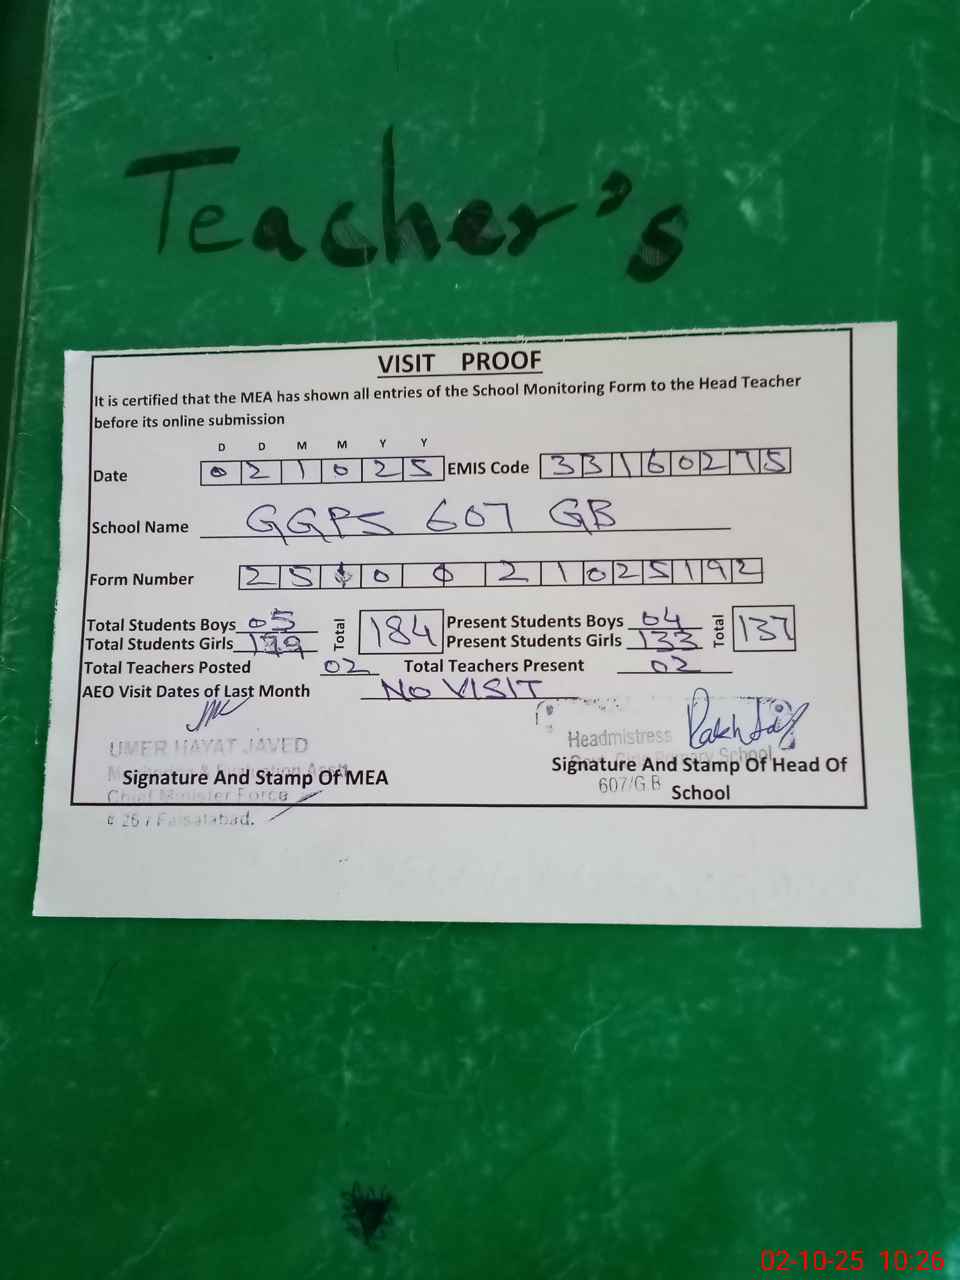 Teacher's
VISIT PROOF
It is certified that the MEA has shown all entries of the School Monitoring Form to the Head Teacher
before its online submission
D D M M Y Y
Date 0 2 1 0 2 5 EMIS Code 3 3 1 6 0 2 7 5
School Name GGPS 607 GB
Form Number 2 5 1 0 0 2 1 0 2 5 1 9 2
Total Students Boys 05 Total 184 Present Students Boys 04 Total 137
Total Students Girls 179 Present Students Girls 133
Total Teachers Posted 02 Total Teachers Present 02
AEO Visit Dates of Last Month NO VISIT
UMER HAYAT JAVED Headmistress
Signature And Stamp Of MEA Signature And Stamp Of Head Of
Chief Minister Force 607/G.B School
Faisalabad.
02-10-25 10:26